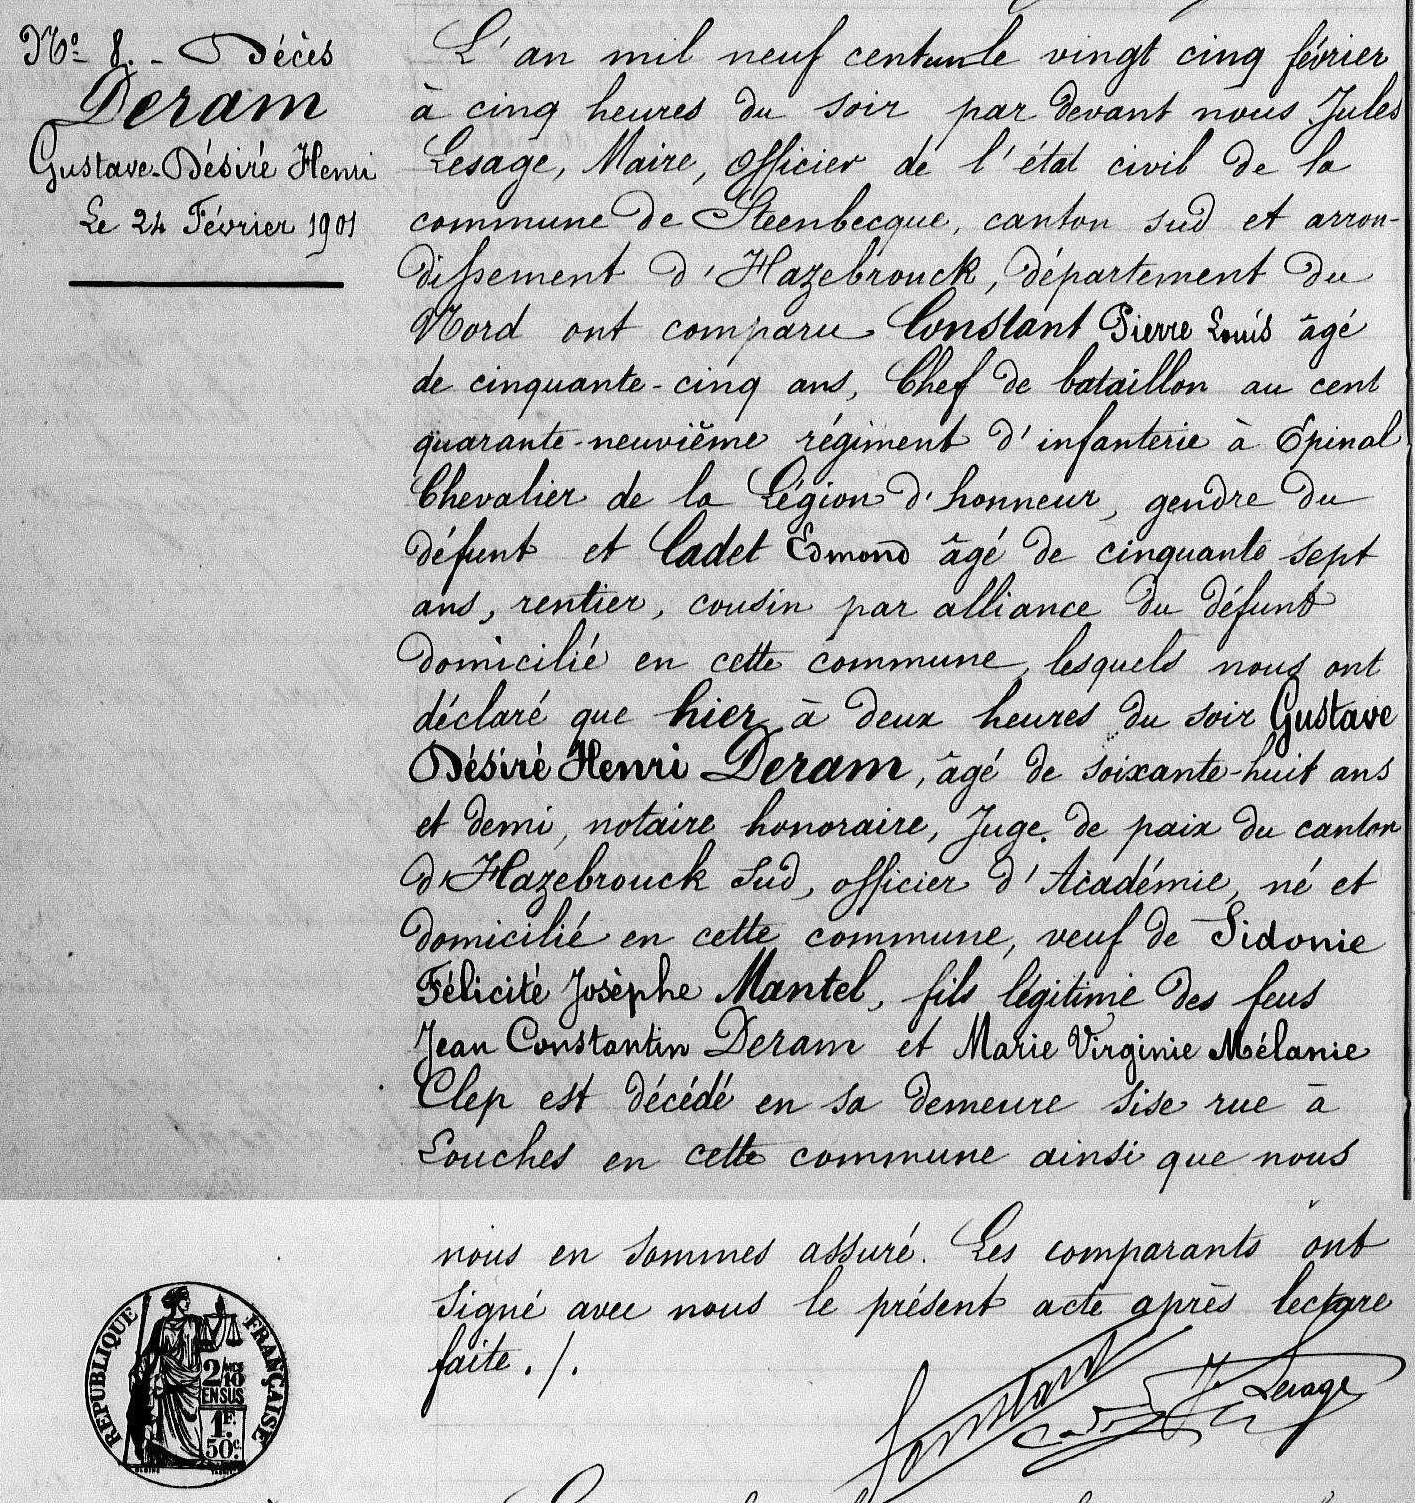 N° 8. - Décès
Deram
Gustave-Désiré Henri
Le 24 Février 1901
L'an mil neuf cent un le vingt cinq février
à cinq heures du soir par devant nous Jules
Lesage, Maire, officier de l'état civil de la
commune de Steenbecque, canton sud et arron-
dissement d'Hazebrouck, département du
Nord ont comparu Constant Pierre Louis âgé
de cinquante-cinq ans, Chef de bataillon au cent
quarante-neuvième régiment d'infanterie à Épinal
Chevalier de la Légion d'honneur, gendre du
défunt et Cadet Edmond âgé de cinquante sept
ans, rentier, cousin par alliance du défunt
domicilié en cette commune, lesquels nous ont
déclaré que hier à deux heures du soir Gustave
Désiré Henri Deram, âgé de soixante-huit ans
et demi, notaire honoraire, Juge de paix du canton
d'Hazebrouck Sud, officier d'Académie, né et
domicilié en cette commune, veuf de Sidonie
Félicité Josèphe Mantel, fils légitime des feus
Jean Constantin Deram et Marie Virginie Mélanie
Clep est décédé en sa demeure sise rue à
Louches en cette commune ainsi que nous
nous en sommes assuré. Les comparants ont
signé avec nous le présent acte après lecture
faite ./.
Constant
J. Lesage
RÉPUBLIQUE FRANÇAISE
2/10
EN SUS
1F.
50c.